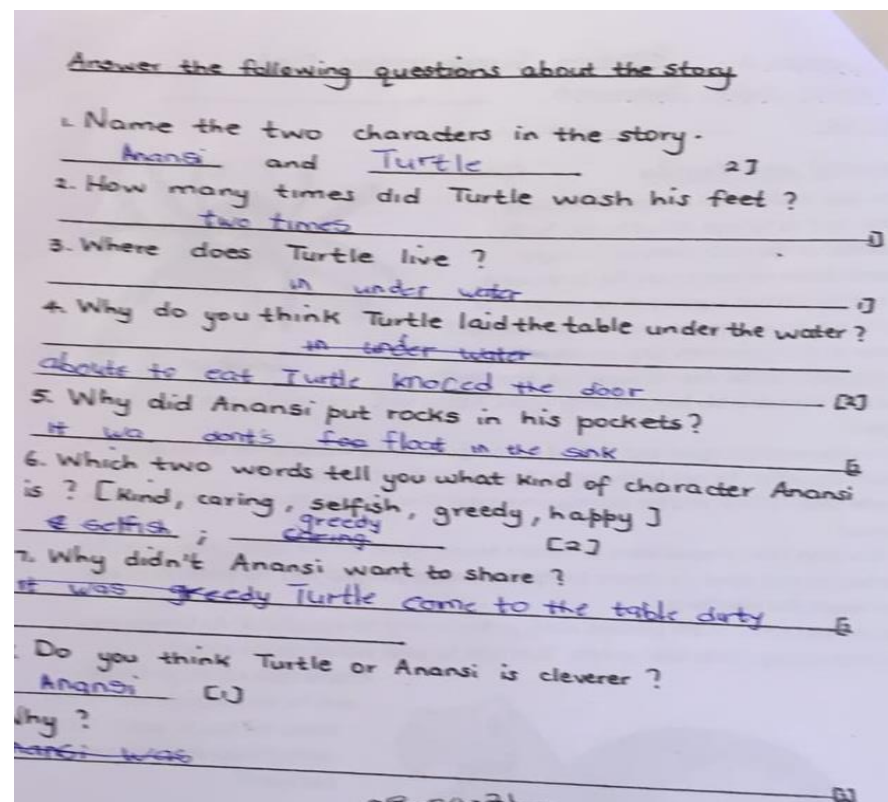 Answer the following questions about the story
1. Name the two characters in the story.
Anansi and Turtle 2]
2. How many times did Turtle wash his feet ?
two times 1]
3. Where does Turtle live ?
in under water 1]
4. Why do you think Turtle laid the table under the water ?
in under water
abouts to eat Turtle knoced the door [2]
5. Why did Anansi put rocks in his pockets?
it wa dont's foo float in the sink
6. Which two words tell you what kind of character Anansi
is ? [Kind, caring, selfish, greedy, happy ]
greedy
selfish ; caring [2]
7. Why didn't Anansi want to share ?
it was greedy Turtle come to the table duty
Do you think Turtle or Anansi is cleverer ?
Anansi [1]
Why ?
was